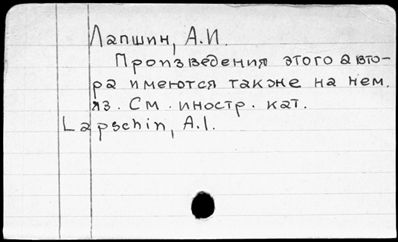 Лапшин, А.И.
Произведения этого авто-
ра имеются также на нем.
яз. См. иностр. кат.
Lapschin, A.I.